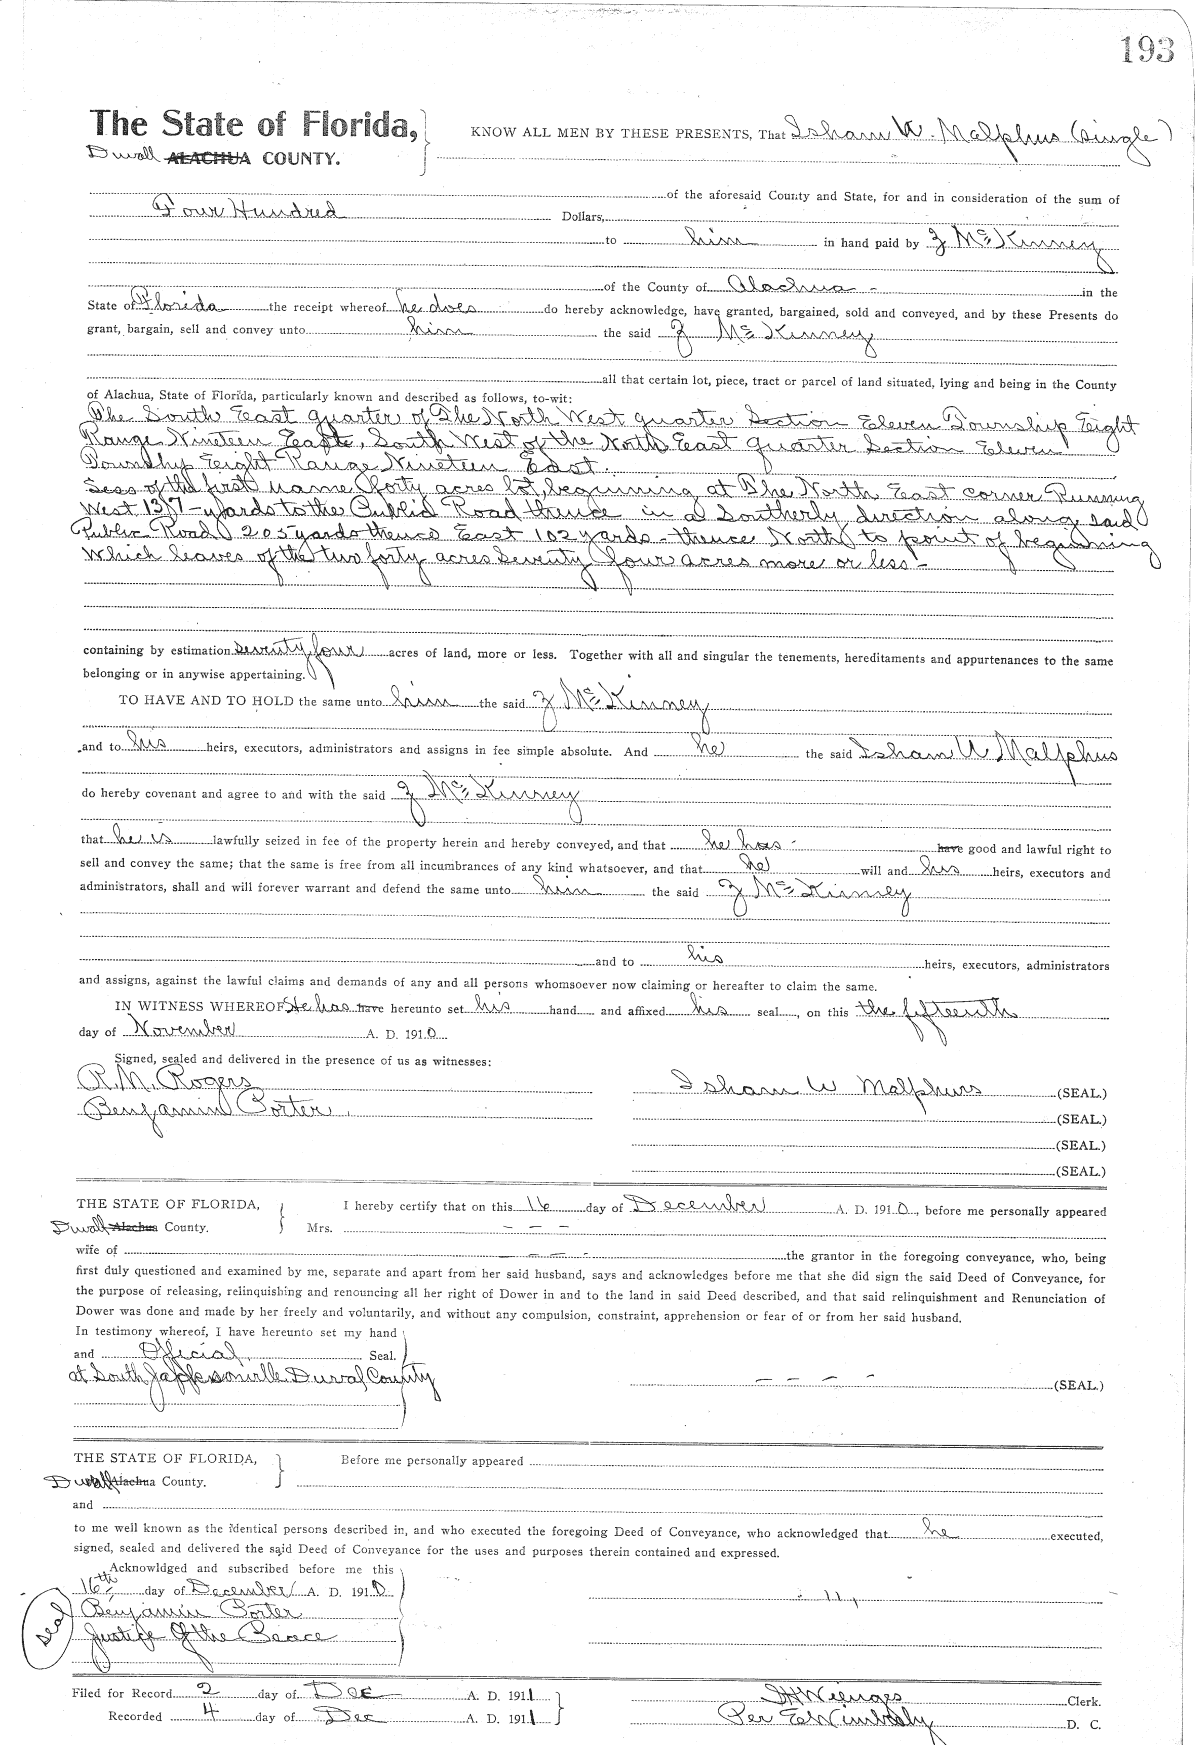 193
The State of Florida,
Duvall ALACHUA COUNTY.
KNOW ALL MEN BY THESE PRESENTS, That Isham W. Malphus (single)
of the aforesaid County and State, for and in consideration of the sum of
Four Hundred Dollars,
to him in hand paid by Z McKinney
of the County of Alachua - in the
State of Florida the receipt whereof he does do hereby acknowledge, have granted, bargained, sold and conveyed, and by these Presents do
grant, bargain, sell and convey unto him the said Z McKinney
all that certain lot, piece, tract or parcel of land situated, lying and being in the County
of Alachua, State of Florida, particularly known and described as follows, to-wit:
The South East quarter of The North West quarter Section Eleven Township Eight
Range Nineteen East, South West of the North East quarter Section Eleven
Township Eight Range Nineteen East.
Less of the first name forty acres lot, beginning at The North East corner Running
West 137 - yards to the Public Road thence in a Southerly direction along said
Public Road 205 yards thence East 102 yards - thence North to point of beginning
Which leaves of the two forty acres Seventy four acres more or less -
containing by estimation seventy four acres of land, more or less. Together with all and singular the tenements, hereditaments and appurtenances to the same
belonging or in anywise appertaining.
TO HAVE AND TO HOLD the same unto him the said Z McKinney
and to his heirs, executors, administrators and assigns in fee simple absolute. And he the said Isham W Malphus
do hereby covenant and agree to and with the said Z McKinney
that he is lawfully seized in fee of the property herein and hereby conveyed, and that he has - have good and lawful right to
sell and convey the same; that the same is free from all incumbrances of any kind whatsoever, and that he will and his heirs, executors and
administrators, shall and will forever warrant and defend the same unto him the said Z McKinney
and to his heirs, executors, administrators
and assigns, against the lawful claims and demands of any and all persons whomsoever now claiming or hereafter to claim the same.
IN WITNESS WHEREOF He has have hereunto set his hand and affixed his seal, on this the fifteenth
day of November A. D. 1910
Signed, sealed and delivered in the presence of us as witnesses:
R. M. Rogers
Isham W Malphurs (SEAL.)
Benjamin Porter.
(SEAL.)
(SEAL.)
(SEAL.)
THE STATE OF FLORIDA,
Duvall Alachua County.
I hereby certify that on this 16 day of December A. D. 1910, before me personally appeared
Mrs. - - -
wife of - - - - the grantor in the foregoing conveyance, who, being
first duly questioned and examined by me, separate and apart from her said husband, says and acknowledges before me that she did sign the said Deed of Conveyance, for
the purpose of releasing, relinquishing and renouncing all her right of Dower in and to the land in said Deed described, and that said relinquishment and Renunciation of
Dower was done and made by her freely and voluntarily, and without any compulsion, constraint, apprehension or fear of or from her said husband.
In testimony whereof, I have hereunto set my hand
and Official Seal.
at South Jacksonville Duval County
- - - - (SEAL.)
THE STATE OF FLORIDA,
Duvall Alachua County.
Before me personally appeared
and
to me well known as the identical persons described in, and who executed the foregoing Deed of Conveyance, who acknowledged that he executed,
signed, sealed and delivered the said Deed of Conveyance for the uses and purposes therein contained and expressed.
Acknowldged and subscribed before me this
16th day of December A. D. 1910
Benjamin Porter
Justice of the Peace
Seal
Filed for Record 2 day of Dec A. D. 1911
Recorded 4 day of Dec A. D. 1911
S H Wienges Clerk.
Per E Wimberly D. C.